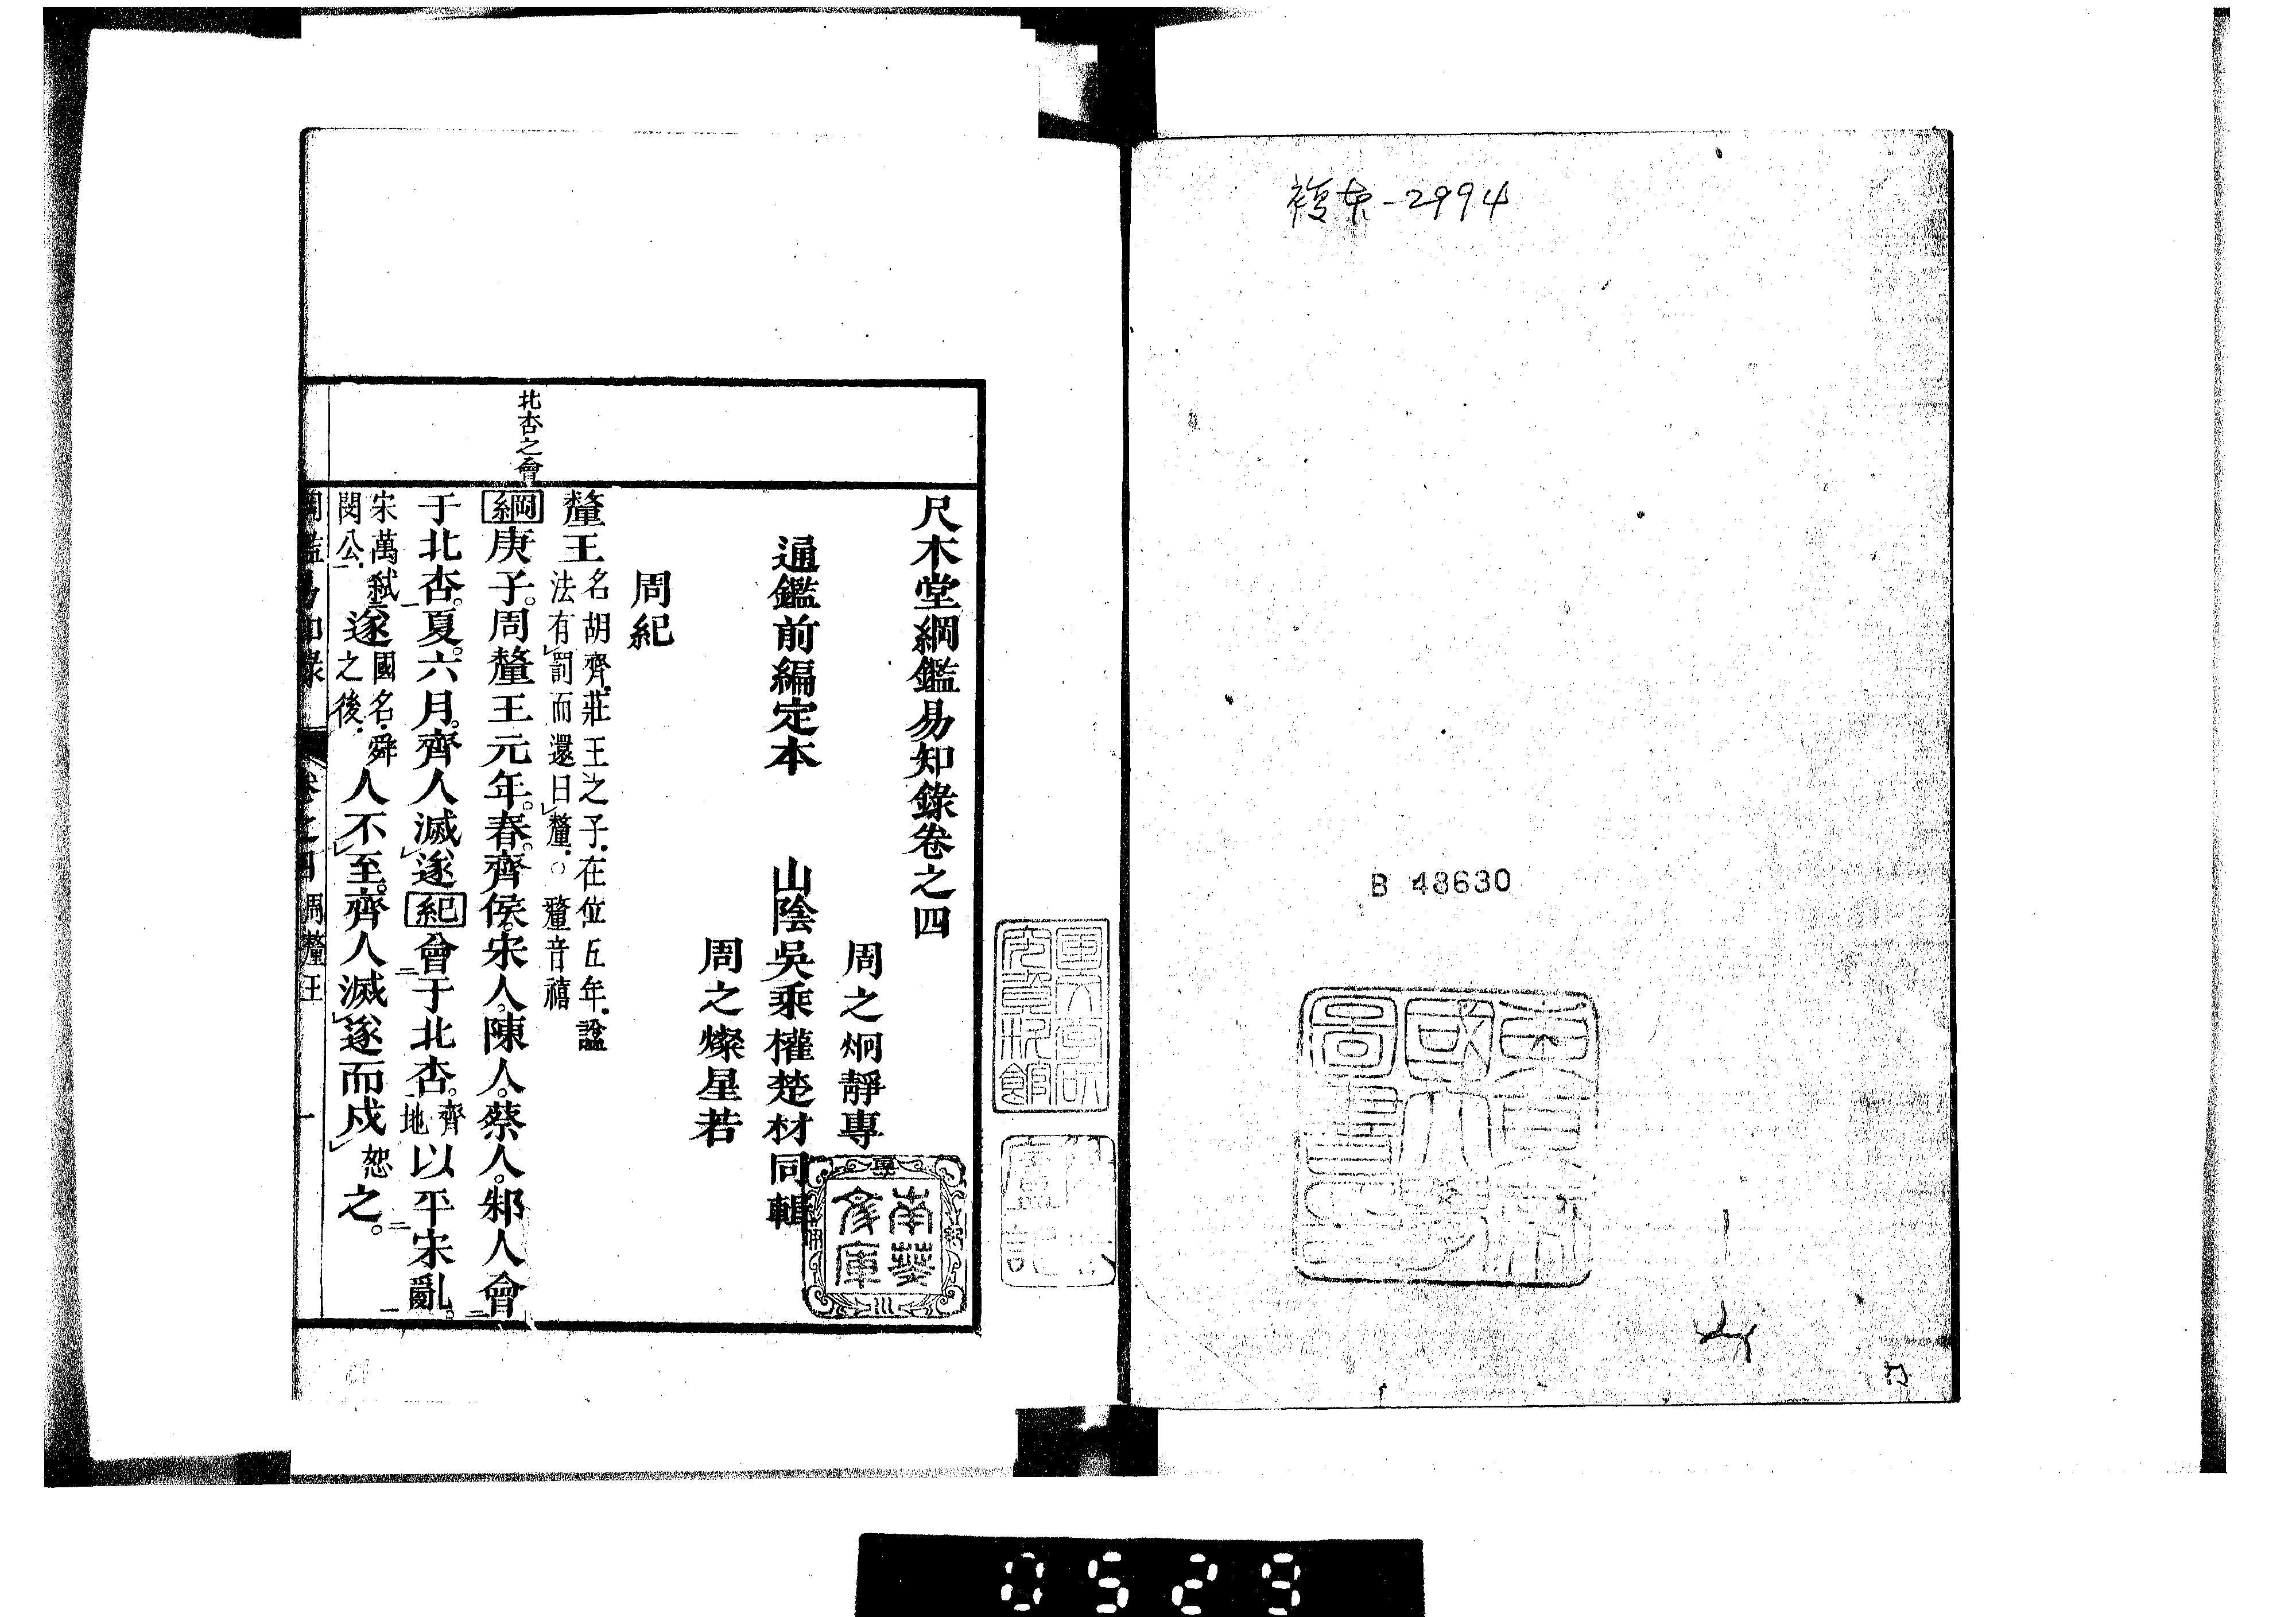 複本-2994
B 48630
尺木堂綱鑑易知錄卷之四
周之炯靜專
通鑑前編定本　山陰吳乘權楚材同輯
周之燦星若
周紀
釐王名胡齊莊王之子在位五年諡
法有罰而還曰釐○釐音禧
北杏之會
綱庚子周釐王元年春齊侯宋人陳人蔡人邾人會
于北杏夏六月齊人滅遂紀會于北杏齊地以平宋亂
宋萬弒閔公遂國名舜之後人不至齊人滅遂而戍恕之
卷之四 周釐王 一
南葵文庫
0529